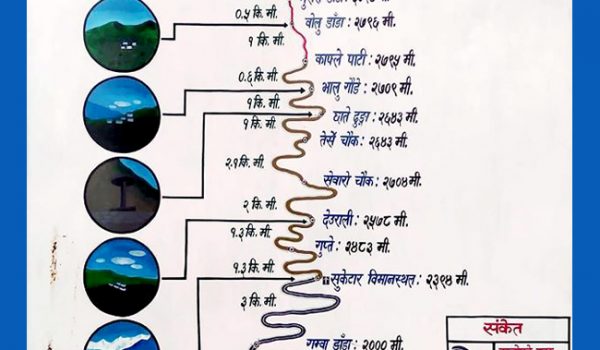 ०.५ कि. मी.
वोलु डाँडा : २७९६ मी.
१ कि. मी.
काफ्ले पाटी : २७९५ मी.
०.६ कि. मी.
भालु गौंडे : २७०९ मी.
१ कि. मी.
घाते ढुङ्गा : २६४३ मी.
१ कि. मी.
तेर्से चौक : २६४३ मी.
२.१ कि. मी.
सेवारो चौक : २७०४ मी.
२ कि. मी.
देउराली : २५७८ मी.
१.३ कि. मी.
गुप्ते : २४८३ मी.
१.३ कि. मी.
सुकेटार विमानस्थल : २३९४ मी.
३ कि. मी.
संकेत
डाँडा : २००० मी.